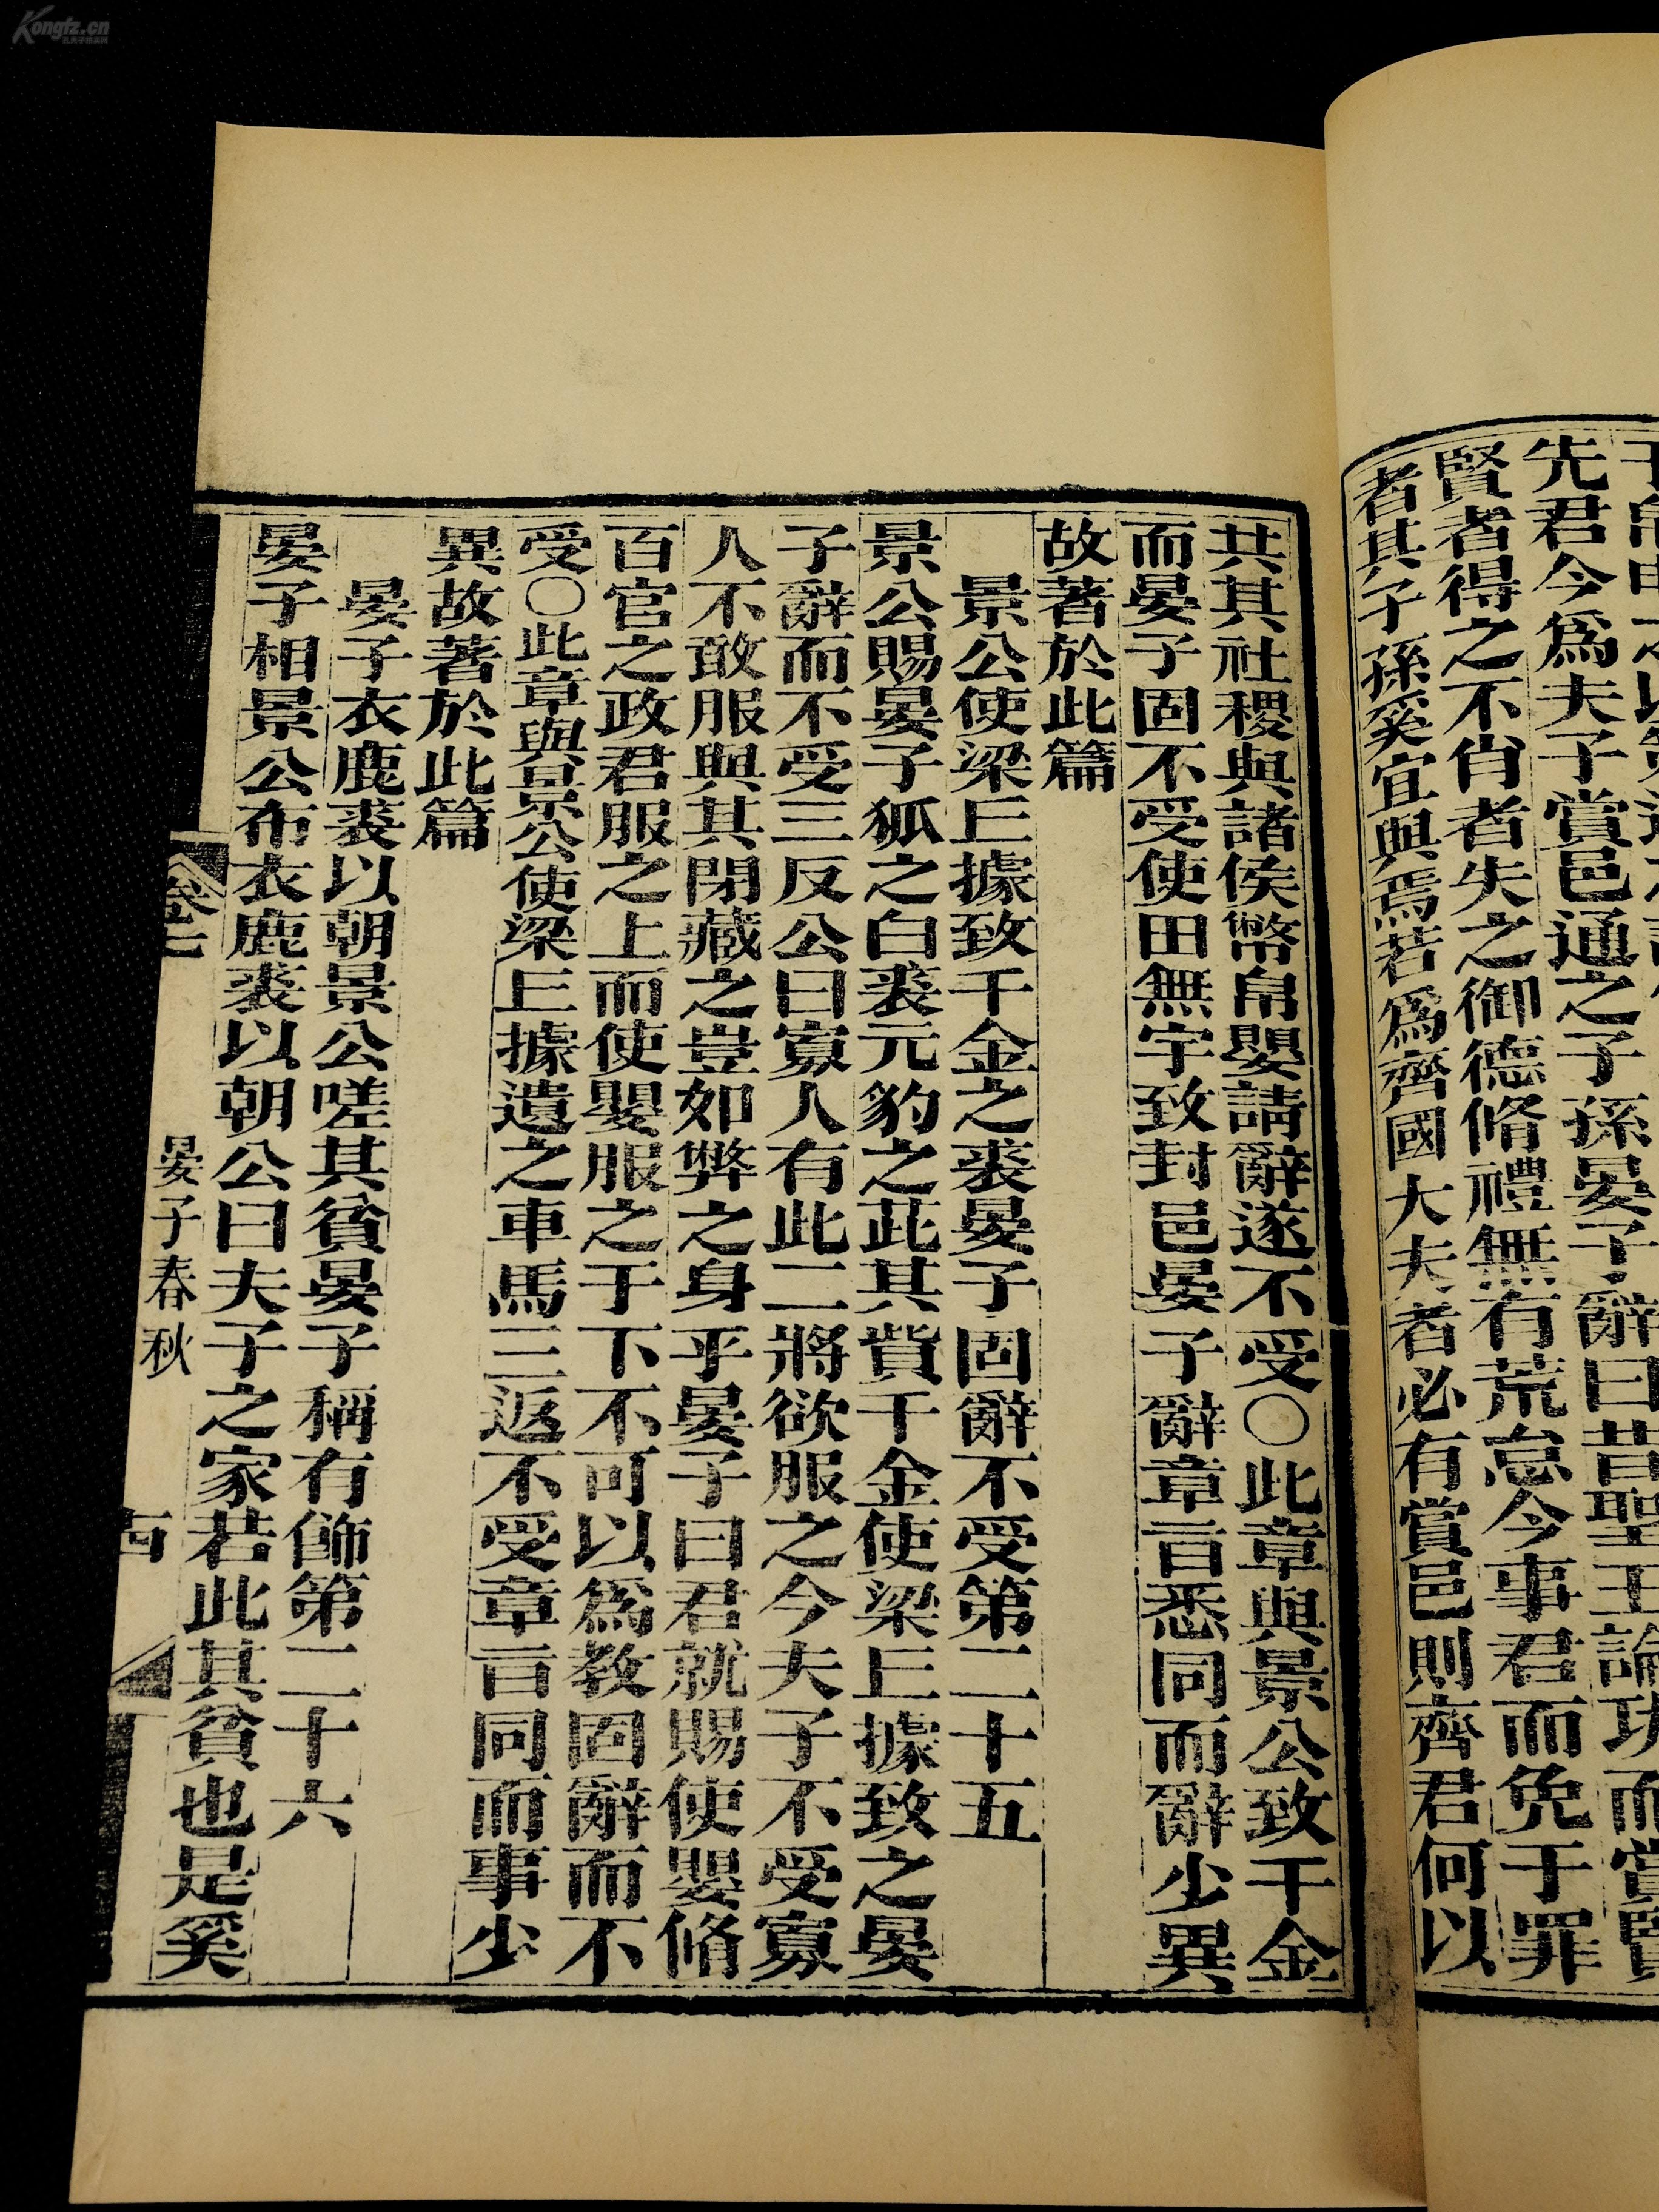 先君今爲夫子賞邑通之子孫晏子辭曰昔聖王論功而賞賢
賢者得之不肖者失之御德脩禮無有荒怠今事君而免于罪
者其子孫奚宜與焉若爲齊國大夫者必有賞邑則齊君何以
共其社稷與諸侯幣帛嬰請辭遂不受○此章與景公致千金
而晏子固不受使田無宇致封邑晏子辭章旨悉同而辭少異
故著於此篇
景公使梁𠀉據致千金之裘晏子固辭不受第二十五
景公賜晏子狐之白裘元豹之茈其貲千金使梁𠀉據致之晏
子辭而不受三反公曰寡人有此二將欲服之今夫子不受寡
人不敢服與其閉藏之豈如弊之身乎晏子曰君就賜使嬰脩
百官之政君服之上而使嬰服之于下不可以爲教固辭而不
受○此章與景公使梁𠀉據遺之車馬三返不受章旨同而事少
異故著於此篇
晏子衣鹿裘以朝景公嗟其貧晏子稱有飾第二十六
晏子相景公布衣鹿裘以朝公曰夫子之家若此其貧也是奚
晏子春秋
Kongfz.cn